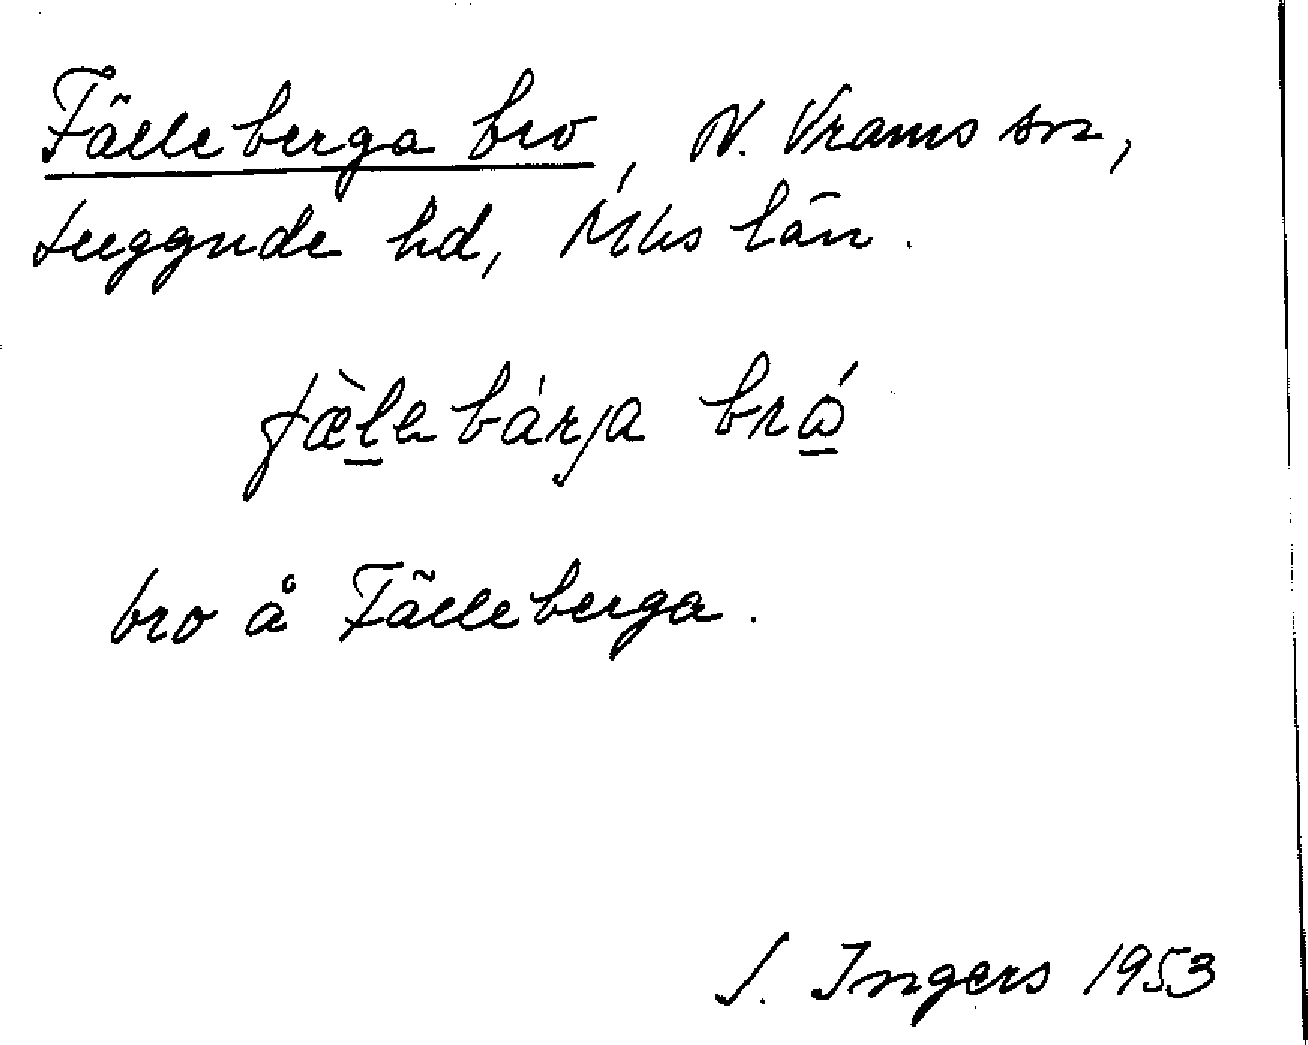 Fälleberga bro, N. Vrams sn,
Luggude hd, Mhs län.
fæ̀lebárja bró
bro å Fälleberga.
I. Ingers 1953